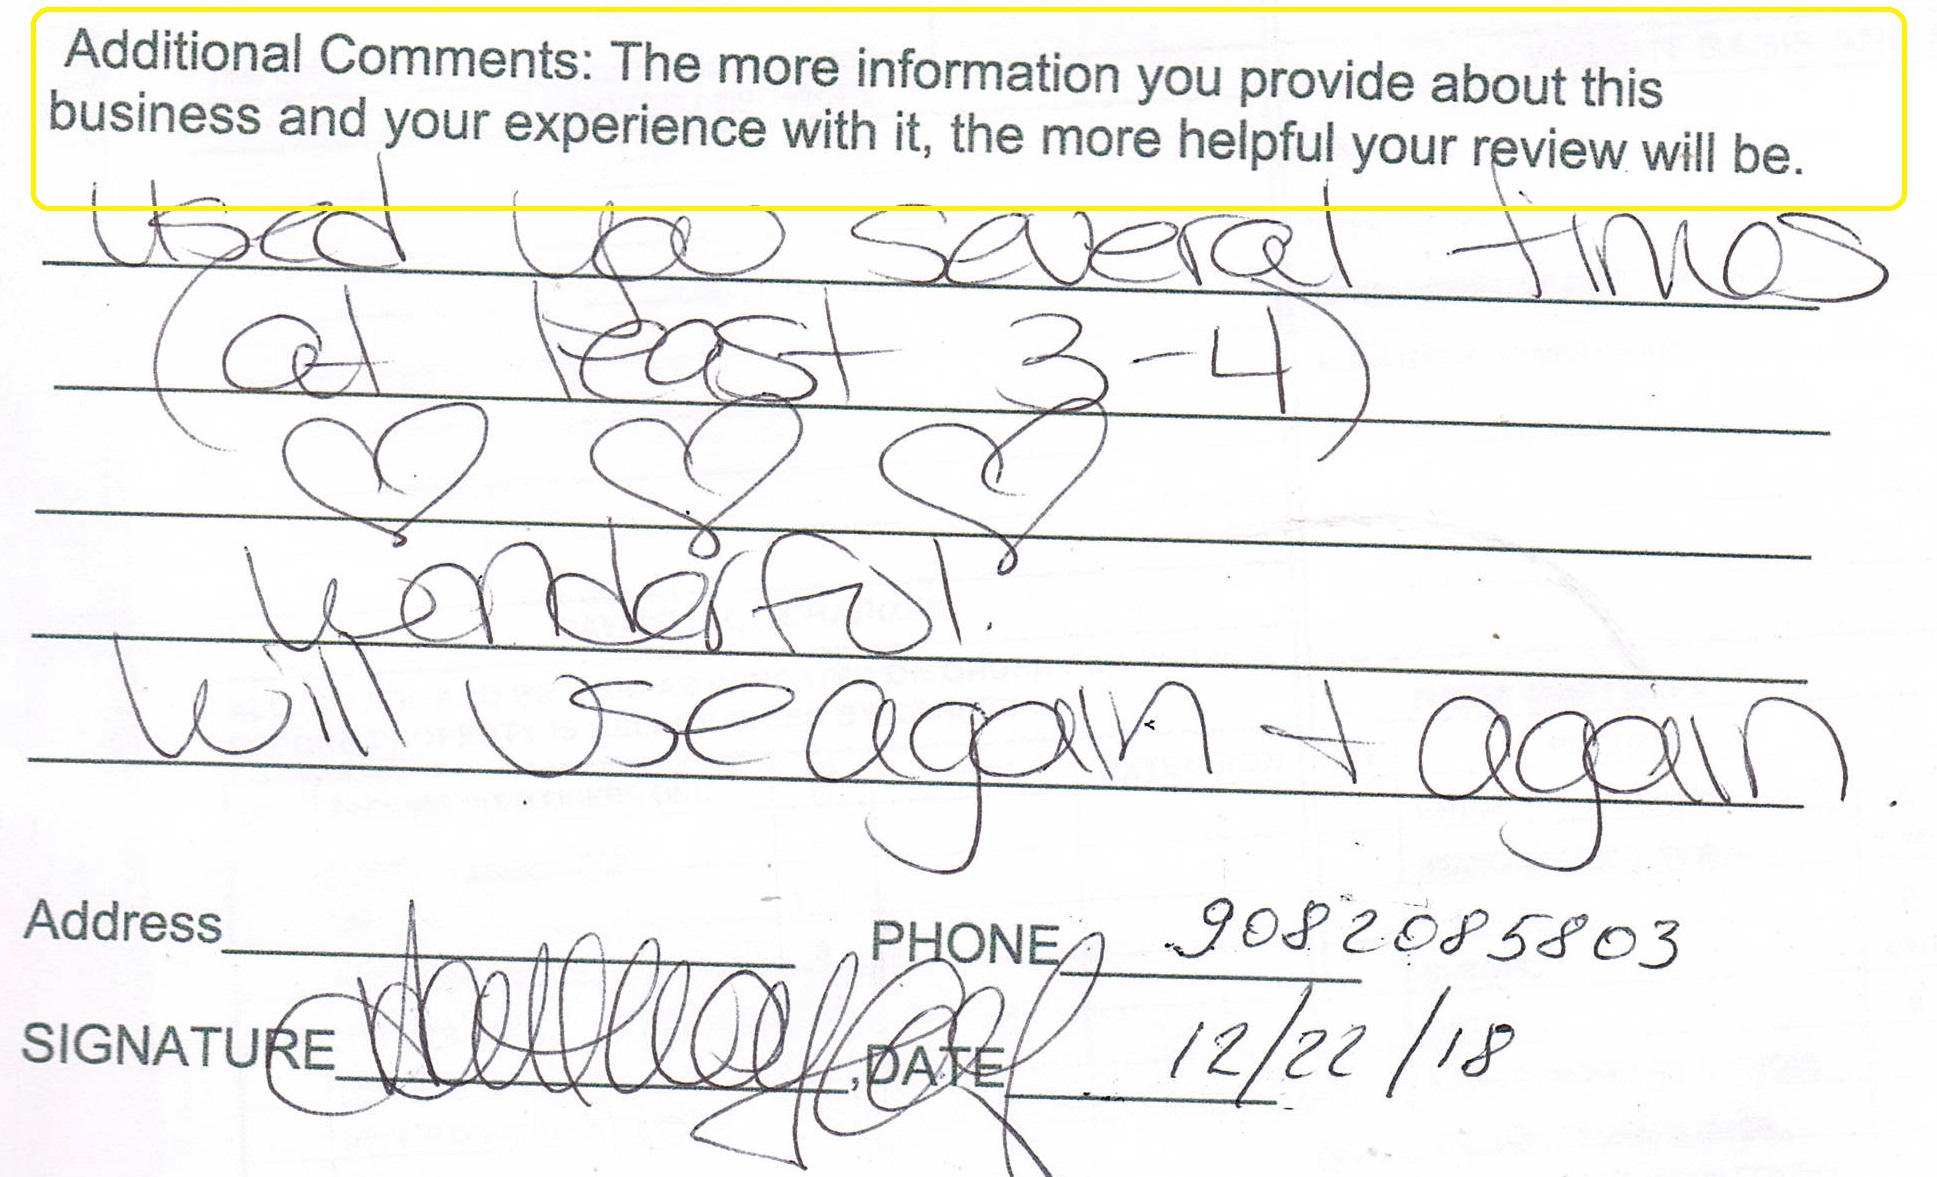 Additional Comments: The more information you provide about this
business and your experience with it, the more helpful your review will be.
Used you several times
(at least 3-4)
♡ ♡ ♡
Wonderful.
Will use again + again.
Address PHONE 9082085803
SIGNATURE DATE 12/22/18